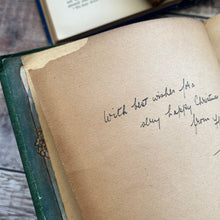 With best wishes for a
very happy Christmas
from